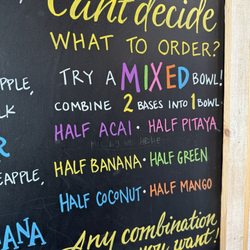 Can't decide
WHAT TO ORDER?
TRY A MIXED BOWL!
COMBINE 2 BASES INTO 1 BOWL
HALF ACAI · HALF PITAYA
HALF BANANA · HALF GREEN
HALF COCONUT · HALF MANGO
Any combination
you want!
PPLE,
LK
R
EAPPLE,
ANA